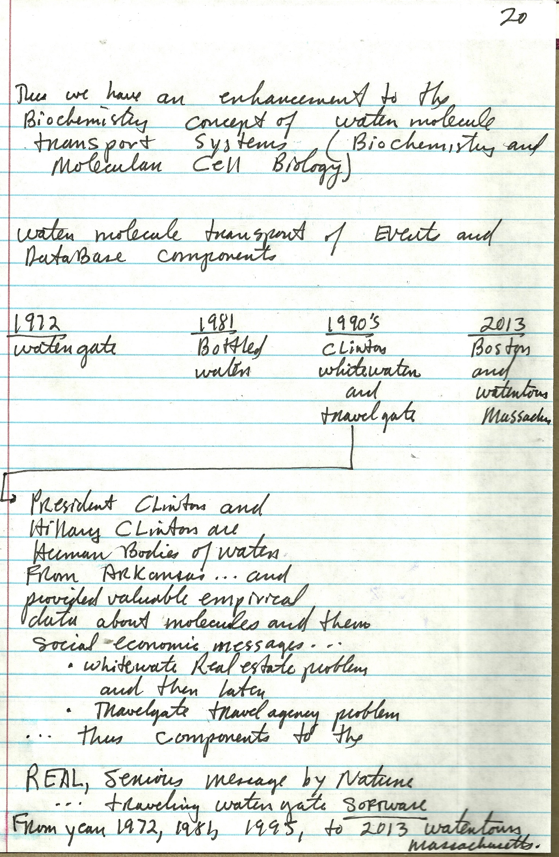 20
Thus we have an enhancement to the
Biochemistry concept of water molecule
transport systems (Biochemistry and
Molecular Cell Biology)
water molecule transport of Events and
DataBase components
1972 1981 1990's 2013
watergate Bottled Clinton Boston
water whitewater and
and watertown
travelgate Massachu
President Clinton and
Hillary Clinton are
Human Bodies of water
From Arkansas... and
provided valuable empirical
data about molecules and them
social-economic messages...
• whitewate Real estate problem
and then later
• Travelgate travel agency problem
... thus components to the
REAL, Serious message by Nature
... traveling watergate Software
From year 1972, 1981, 1995, to 2013 watertown,
Massachusetts.